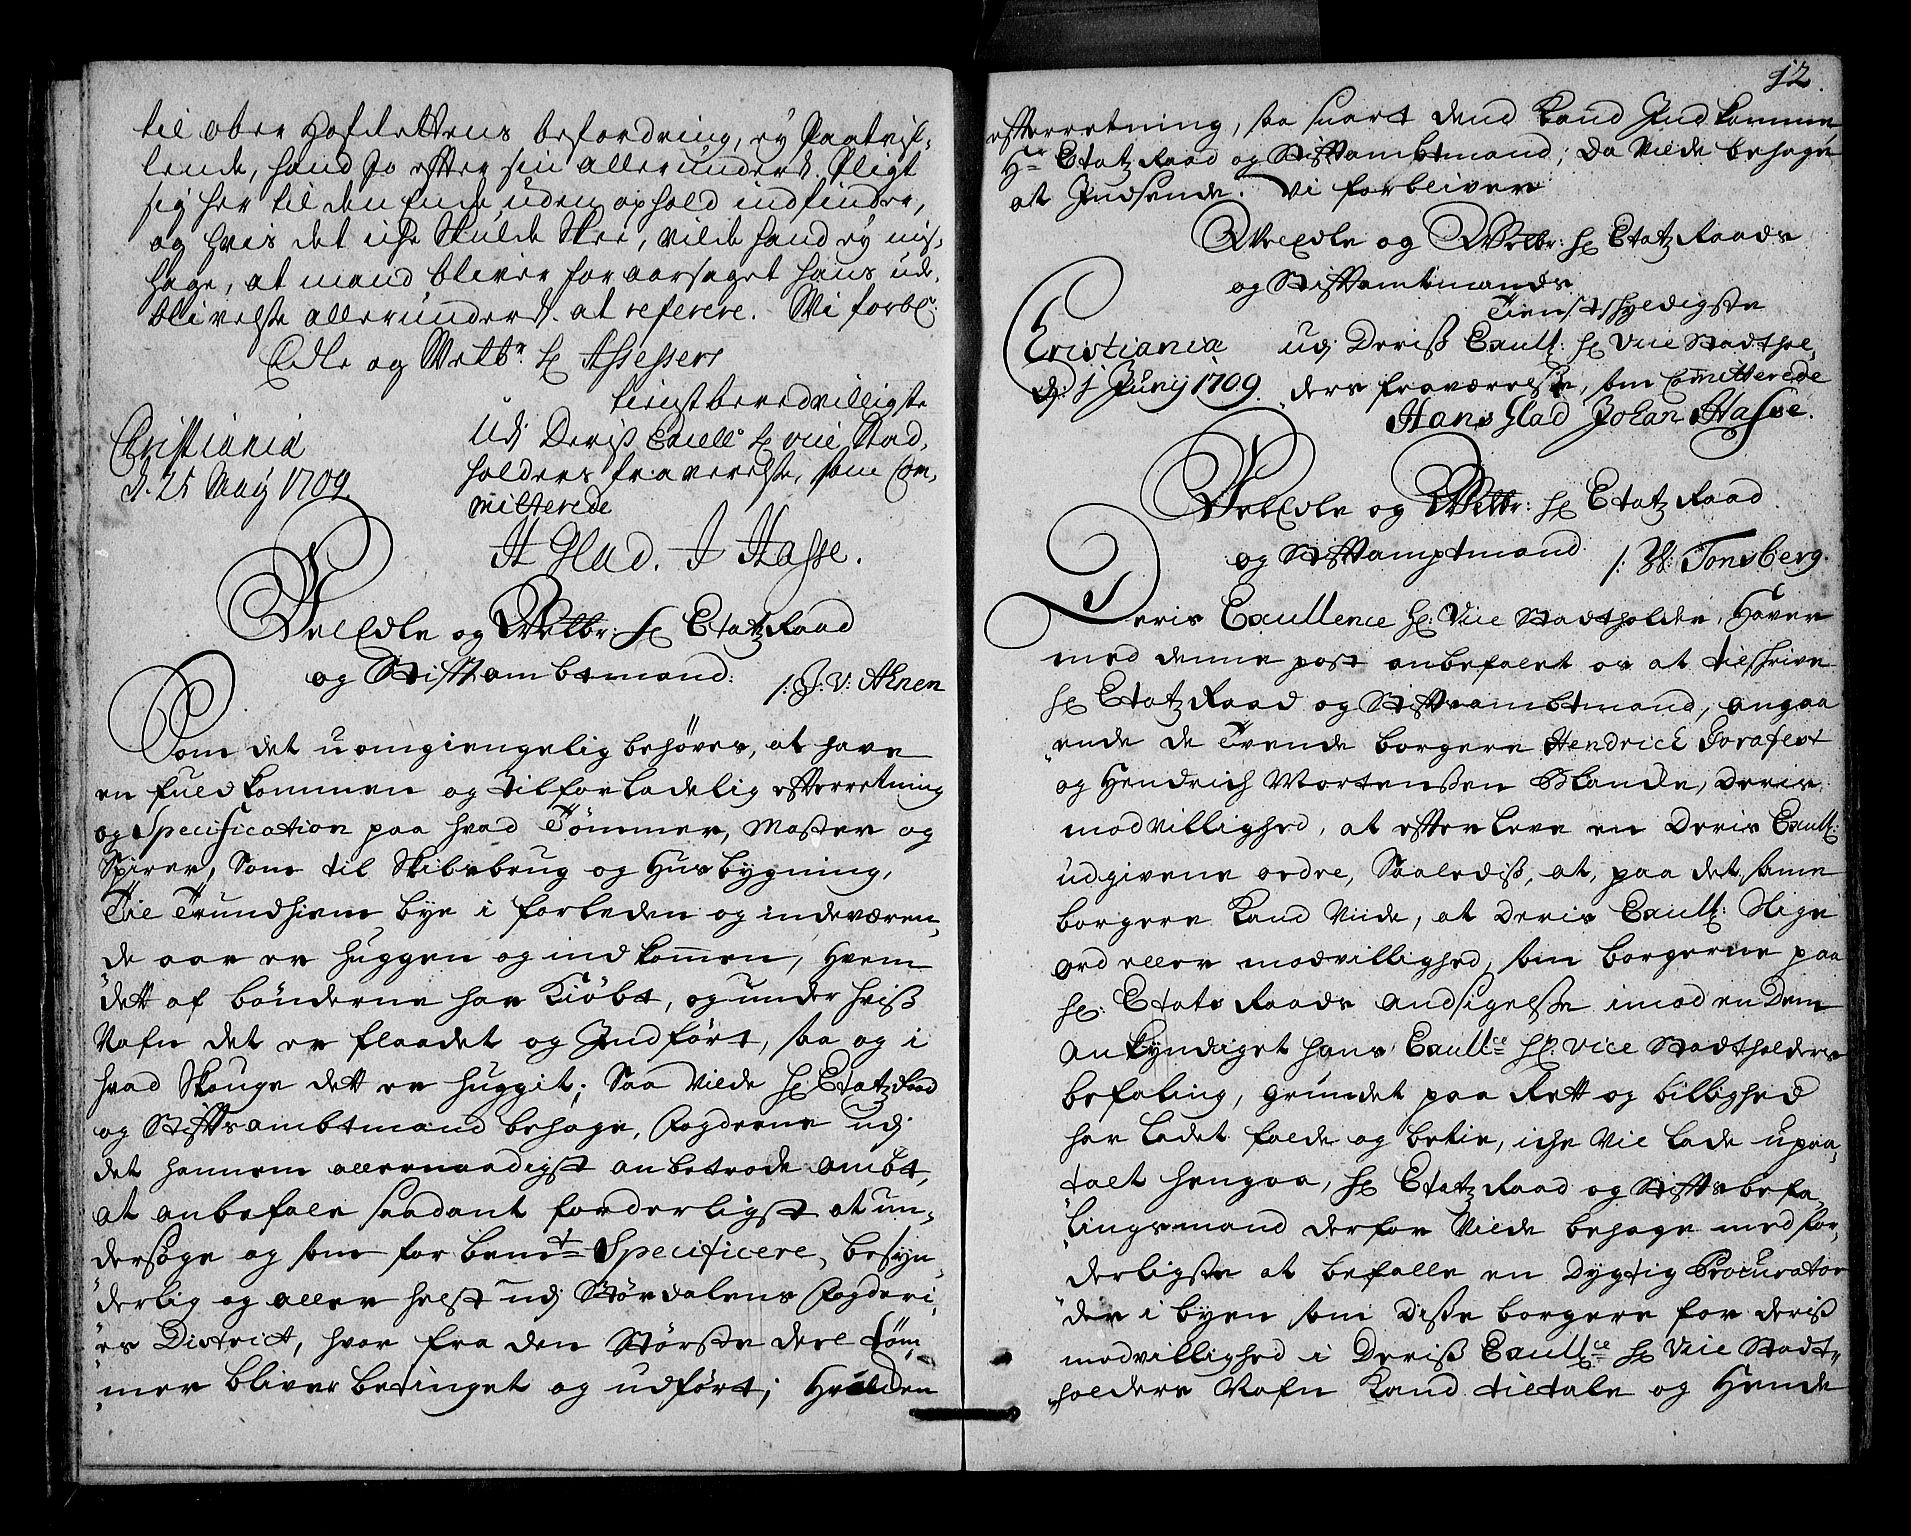 til ober Hofrettens befordring, ey Paatvif-
lende, hand jo effter sin allerunderd. Pligt
sig her til den Ende uden ophold indfinder,
og hvis det iche skulde skee, vilde hand ey mis-
hage, at mand bliver foraarsaget hans ude-
blivelse allerunderd. at referere. Wi forbl:
Edle og Welb: Hr Assessers
tienstberedvilligste
Christiania
d. 25 Maij 1709.
udj Deris Excell: Hr vice Stad-
holders fraværelse, som Com-
mitterede
H Glad. J Hasse.
Vel Edle og Welbr: Hr Etatz Raad
og Stifftambtmand: /: J: V: Ahnen
Som det uomgiengelig behøves, at have
en fuldkommen og tilforladelig efterretning
og Specification paa hvad Tømmer, Master og
Spirer, Som til Skibsbrug og Husbygning,
Til Trundhiem bye i forleden og indeværen-
de aar er huggen og indkommen, Hvem
dett af bønderne har Kiøbt, og under hviss
Nafn det er flaadet og Indført, saa og i
hvad Skouge dett er huggit; Saa vilde Hr Etatz Raad
og Stifftsambtmand behage, Fogderne udj
det hannem allernaadigst anbetrode ambt,
at anbefale saadant forderligst at un-
dersøge og som forbemt Specificere, besyn-
derlig og aller helst udj Størdalens Fogderi-
es District, hvor fra den Største deel tøm-
mer bliver betinget og udført; Hvilden
12.
efterretning, saa snart dend Kand Indkomme
Hr Etatz Raad og Stifftambtmand; Da vilde behage
at Indsende. Vi forbliver
Vel Edle og Welbr: Hr Etatz Raads
og Stifftambtmands
Tienstskyldigste
Cristiania
d: 1 Junij 1709.
udj Deriss Excell: Hr Vice Stadthol-
ders fraværelse, som Comitterede
Hans Glad Johan Hasse.
Vel Edle og Welbr: Hr Etatz Raad
og Stifftamptmand /: W: Tonsberg.
Deris Excellence Hr: Vice Stadtholder, Haver
med denne post anbefalet os at tilskrive
Hr Etatz Raad og Stifftsambtmand, angaa-
ende de Tvende borgere Hendrick Sorafest
og Hendrich Mortenssen Blancke, Deris
modvillighed, at effterleve en Deris Excell:
udgivene ordre, Saalediss, at, paa det same
borgere Kand Viide, at Deris Excell: Slige
ord eller modvillighed, som borgerne paa
Hr: Etats Raads andsigelsse imod en Dem
ankyndiget hans Excellce Hr: Vice Stadtholders
befaling, grundet paa Rett og billighed
har ladet falde og betie, iche vil lade upaa-
talt hengaa, Hr Etatz Raad og Stifftsbefa-
lingsmand derfor Vilde behage med for-
derligste at befalle en Dygtig Procurator
der i byen som Disse borgere for deriss
modvillighed i Deriss Excellce Hr Vice Stadt-
holders Nafn Kand tiltale og Hende